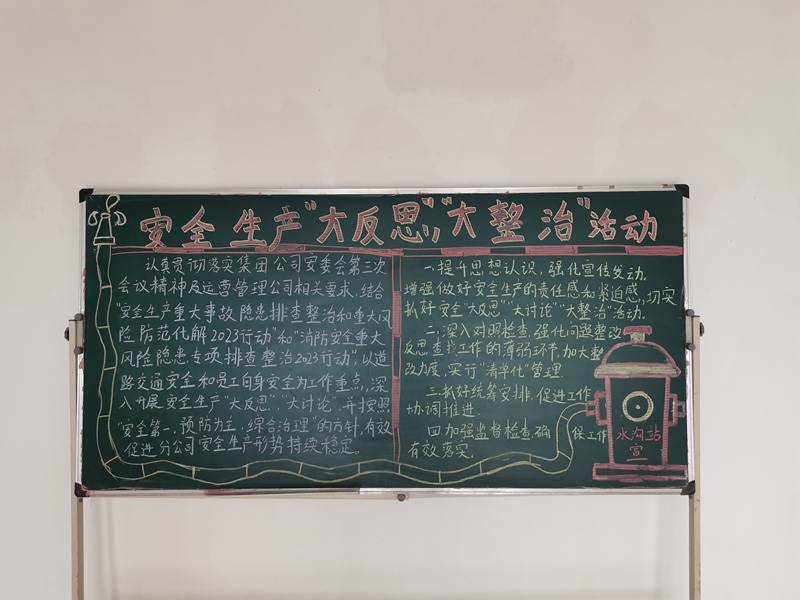 安全生产"大反思"、"大整治"活动
认真贯彻落实集团公司安委会第三次
会议精神及运营管理公司相关要求,结合
"安全生产重大事故隐患排查整治和重大风
险防范化解2023行动"和"消防安全重大
风险隐患专项排查整治2023行动",以道
路交通安全和员工自身安全为工作重点,深
入开展安全生产"大反思"、"大讨论",并按照
"安全第一、预防为主、综合治理"的方针,有效
促进分公司安全生产形势持续稳定。
一.提升思想认识,强化宣传发动,
增强做好安全生产的责任感和紧迫感,切实
抓好安全"大反思""大讨论""大整治"活动。
二.深入对照检查,强化问题整改
反思查找工作的薄弱环节,加大整
改力度,实行"清单化"管理
三.抓好统筹安排,促进工作
协调推进
四.加强监督检查,确保工作
有效落实。
水沟站
宣